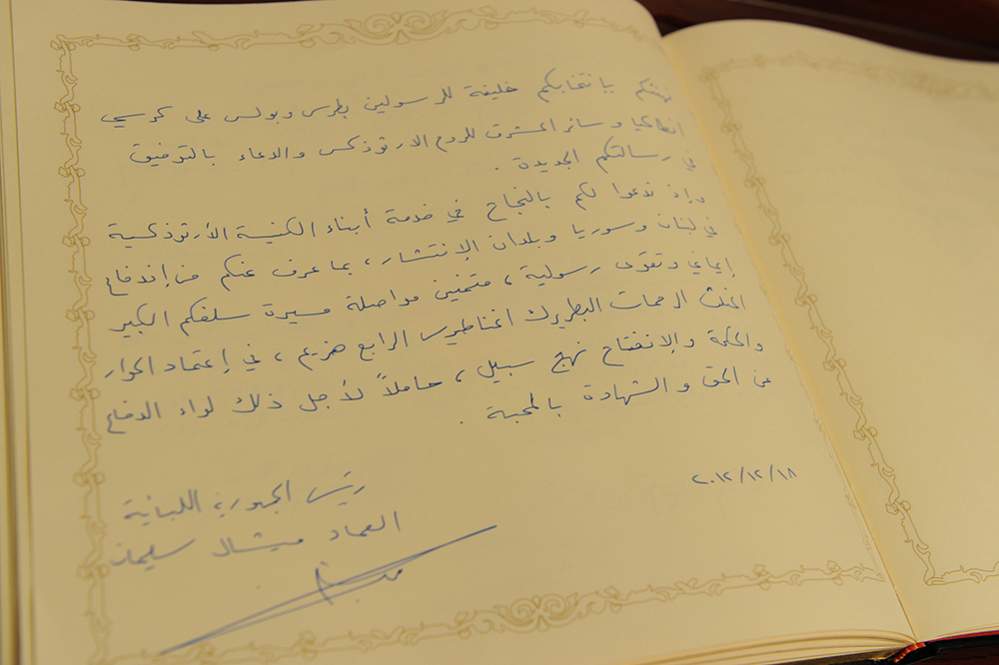 نهنئكم بانتخابكم خليفة للرسولين بطرس وبولس على كرسي
انطاكيا وسائر المشرق للروم الارثوذكس والدعاء بالتوفيق
في رسالتكم الجديدة .
وإذ ندعوا لكم بالنجاح في خدمة أبناء الكنيسة الأرثوذكسية
في لبنان وسوريا وبلدان الإنتشار ، بما عرف عنكم من إندفاع
إيماني وتقوى رسولية ، متمنين مواصلة مسيرة سلفكم الكبير
المثلث الرحمات البطريرك اغناطيوس الرابع هزيم ، في إعتماد الحوار
والحكمة والإنفتاح نهج سبيل ، حاملاً لأجل ذلك لواء الدفاع
عن الحق والشهادة بالمحبة .
٢٠١٢/١٢/١٨
رئيس الجمهورية اللبنانية
العماد ميشال سليمان